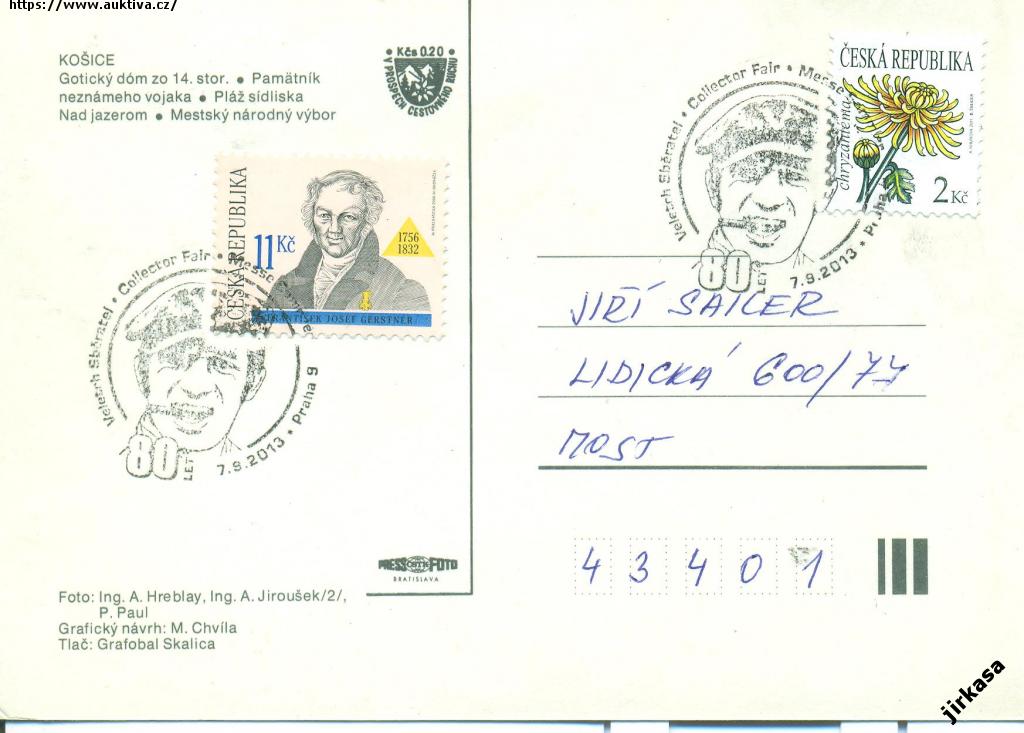 https://www.auktiva.cz/
KOŠICE
Gotický dóm zo 14. stor. • Pamätník
neznámeho vojaka • Pláž sídliska
Nad jazerom • Mestský národný výbor
• Kčs 0.20 •
V PROSPECH CESTOVNÉHO RUCHU
ČESKÁ REPUBLIKA
11 Kč
1756
1832
FRANTIŠEK JOSEF GERSTNER
Veletrh Sběratel • Collector Fair • Messe
Praha 9
80 LET
7.9.2013
Veletrh Sběratel • Collector Fair • Messe
Praha
80 LET
7.9.2013
ČESKÁ REPUBLIKA
chryzantéma
2 Kč
JIŘÍ SAICER
LIDICKÁ 600/77
MOST
4 3 4 0 1
PRESSFOTO
BRATISLAVA
Foto: Ing. A. Hreblay, Ing. A. Jiroušek/2/,
P. Paul
Grafický návrh: M. Chvíla
Tlač: Grafobal Skalica
jirkasa